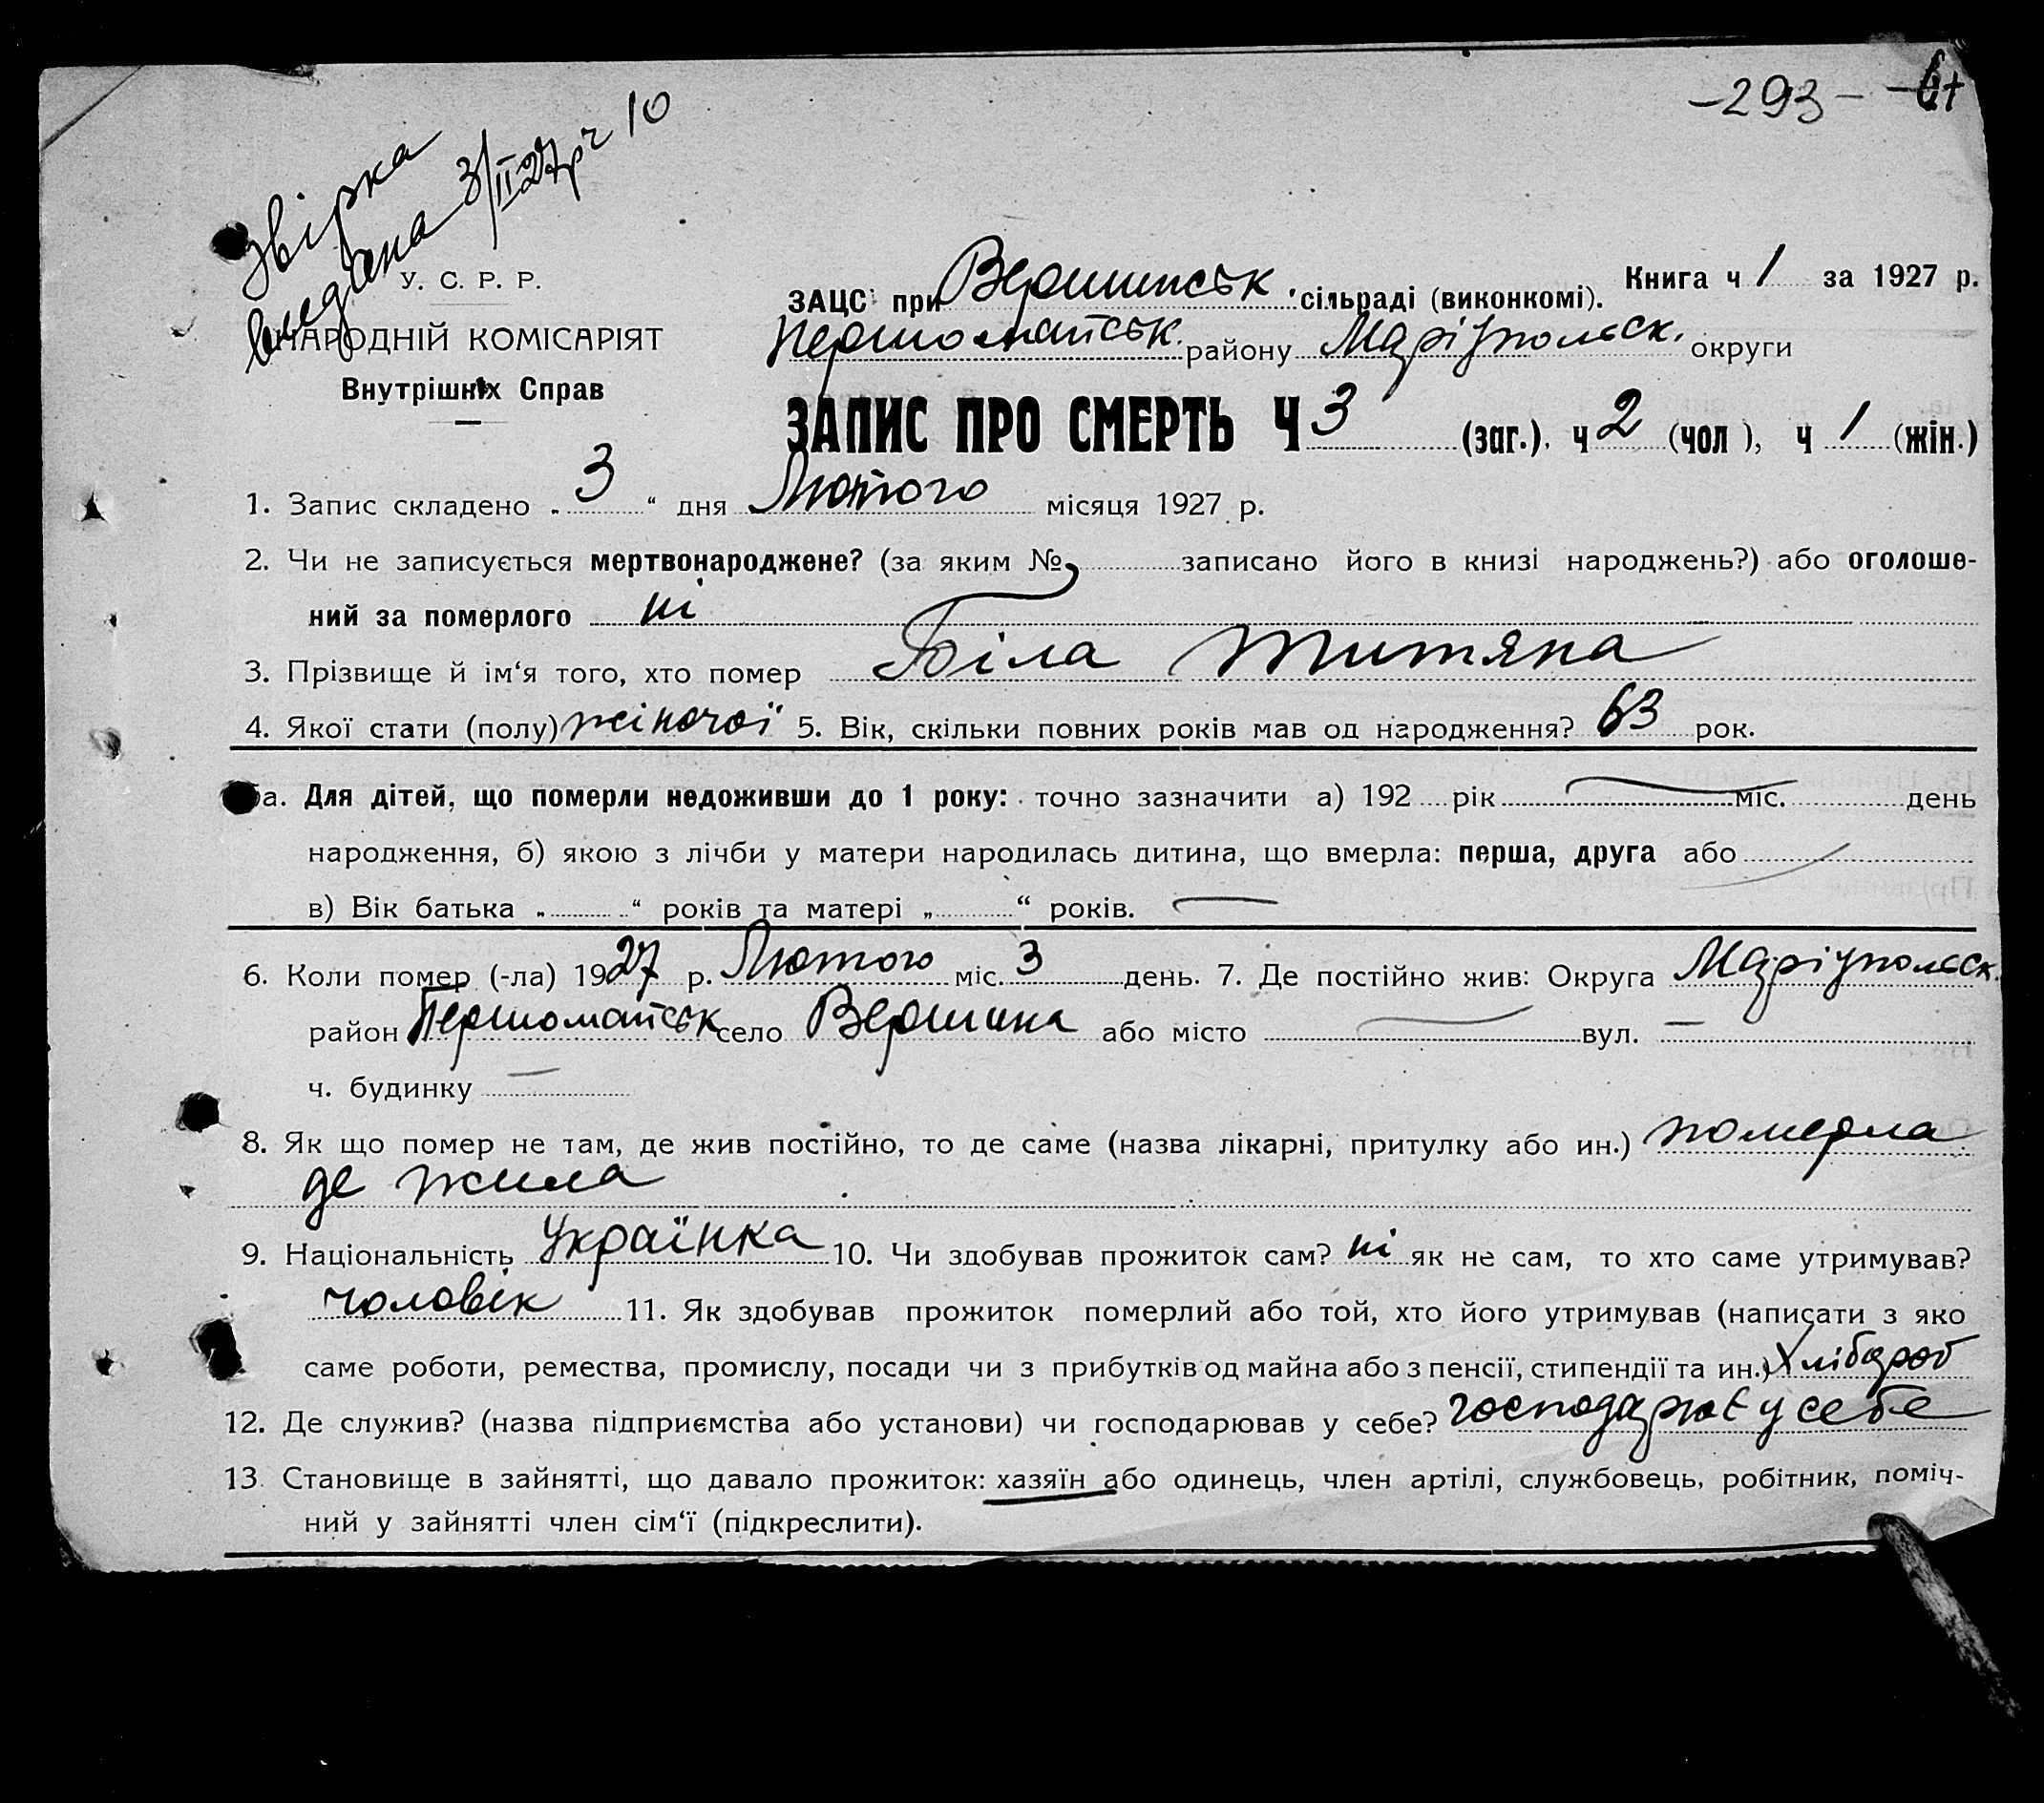 -293-
Звірка
видана 3/II 27 р ч 10
У. С. Р. Р.
НАРОДНІЙ КОМІСАРІЯТ
Внутрішніх Справ
Книга ч 1 за 1927 р.
ЗАЦС при Вершинськ. сільраді (виконкомі).
Першомайськ. району Маріупольск. округи
ЗАПИС ПРО СМЕРТЬ Ч 3 (заг.). ч 2 (чол ), ч 1 (жін.)
1. Запис складено „ 3 “ дня Лютого місяця 1927 р.
2. Чи не записується мертвонароджене? (за яким № записано його в книзі народжень?) або оголоше-
ний за померлого ні
3. Прізвище й ім‘я того, хто помер Біла Титяна
4. Якої стати (полу) жіночої 5. Вік, скільки повних років мав од народження? 63 рок.
5а. Для дітей, що померли недоживши до 1 року: точно зазначити а) 192 рік — міс. день
народження, б) якою з лічби у матери народилась дитина, що вмерла: перша, друга або —
в) Вік батька „ “ років та матері „ “ років. —
6. Коли помер (-ла) 1927 р. Лютого міс. 3 день. 7. Де постійно жив: Округа Маріупольск.
район Першомайськ село Вершина або місто — вул. —
ч. будинку —
8. Як що помер не там, де жив постійно, то де саме (назва лікарні, притулку або ин.) померла
де жила
9. Національність Українка 10. Чи здобував прожиток сам? ні як не сам, то хто саме утримував?
чоловік 11. Як здобував прожиток померлий або той, хто його утримував (написати з яко
саме роботи, ремества, промислу, посади чи з прибутків од майна або з пенсії, стипендії та ин.) Хлібороб
12. Де служив? (назва підприємства або установи) чи господарював у себе? господарює у себе
13. Становище в зайнятті, що давало прожиток: хазяїн або одинець, член артілі, службовець, робітник, поміч-
ний у зайнятті член сім‘ї (підкреслити).